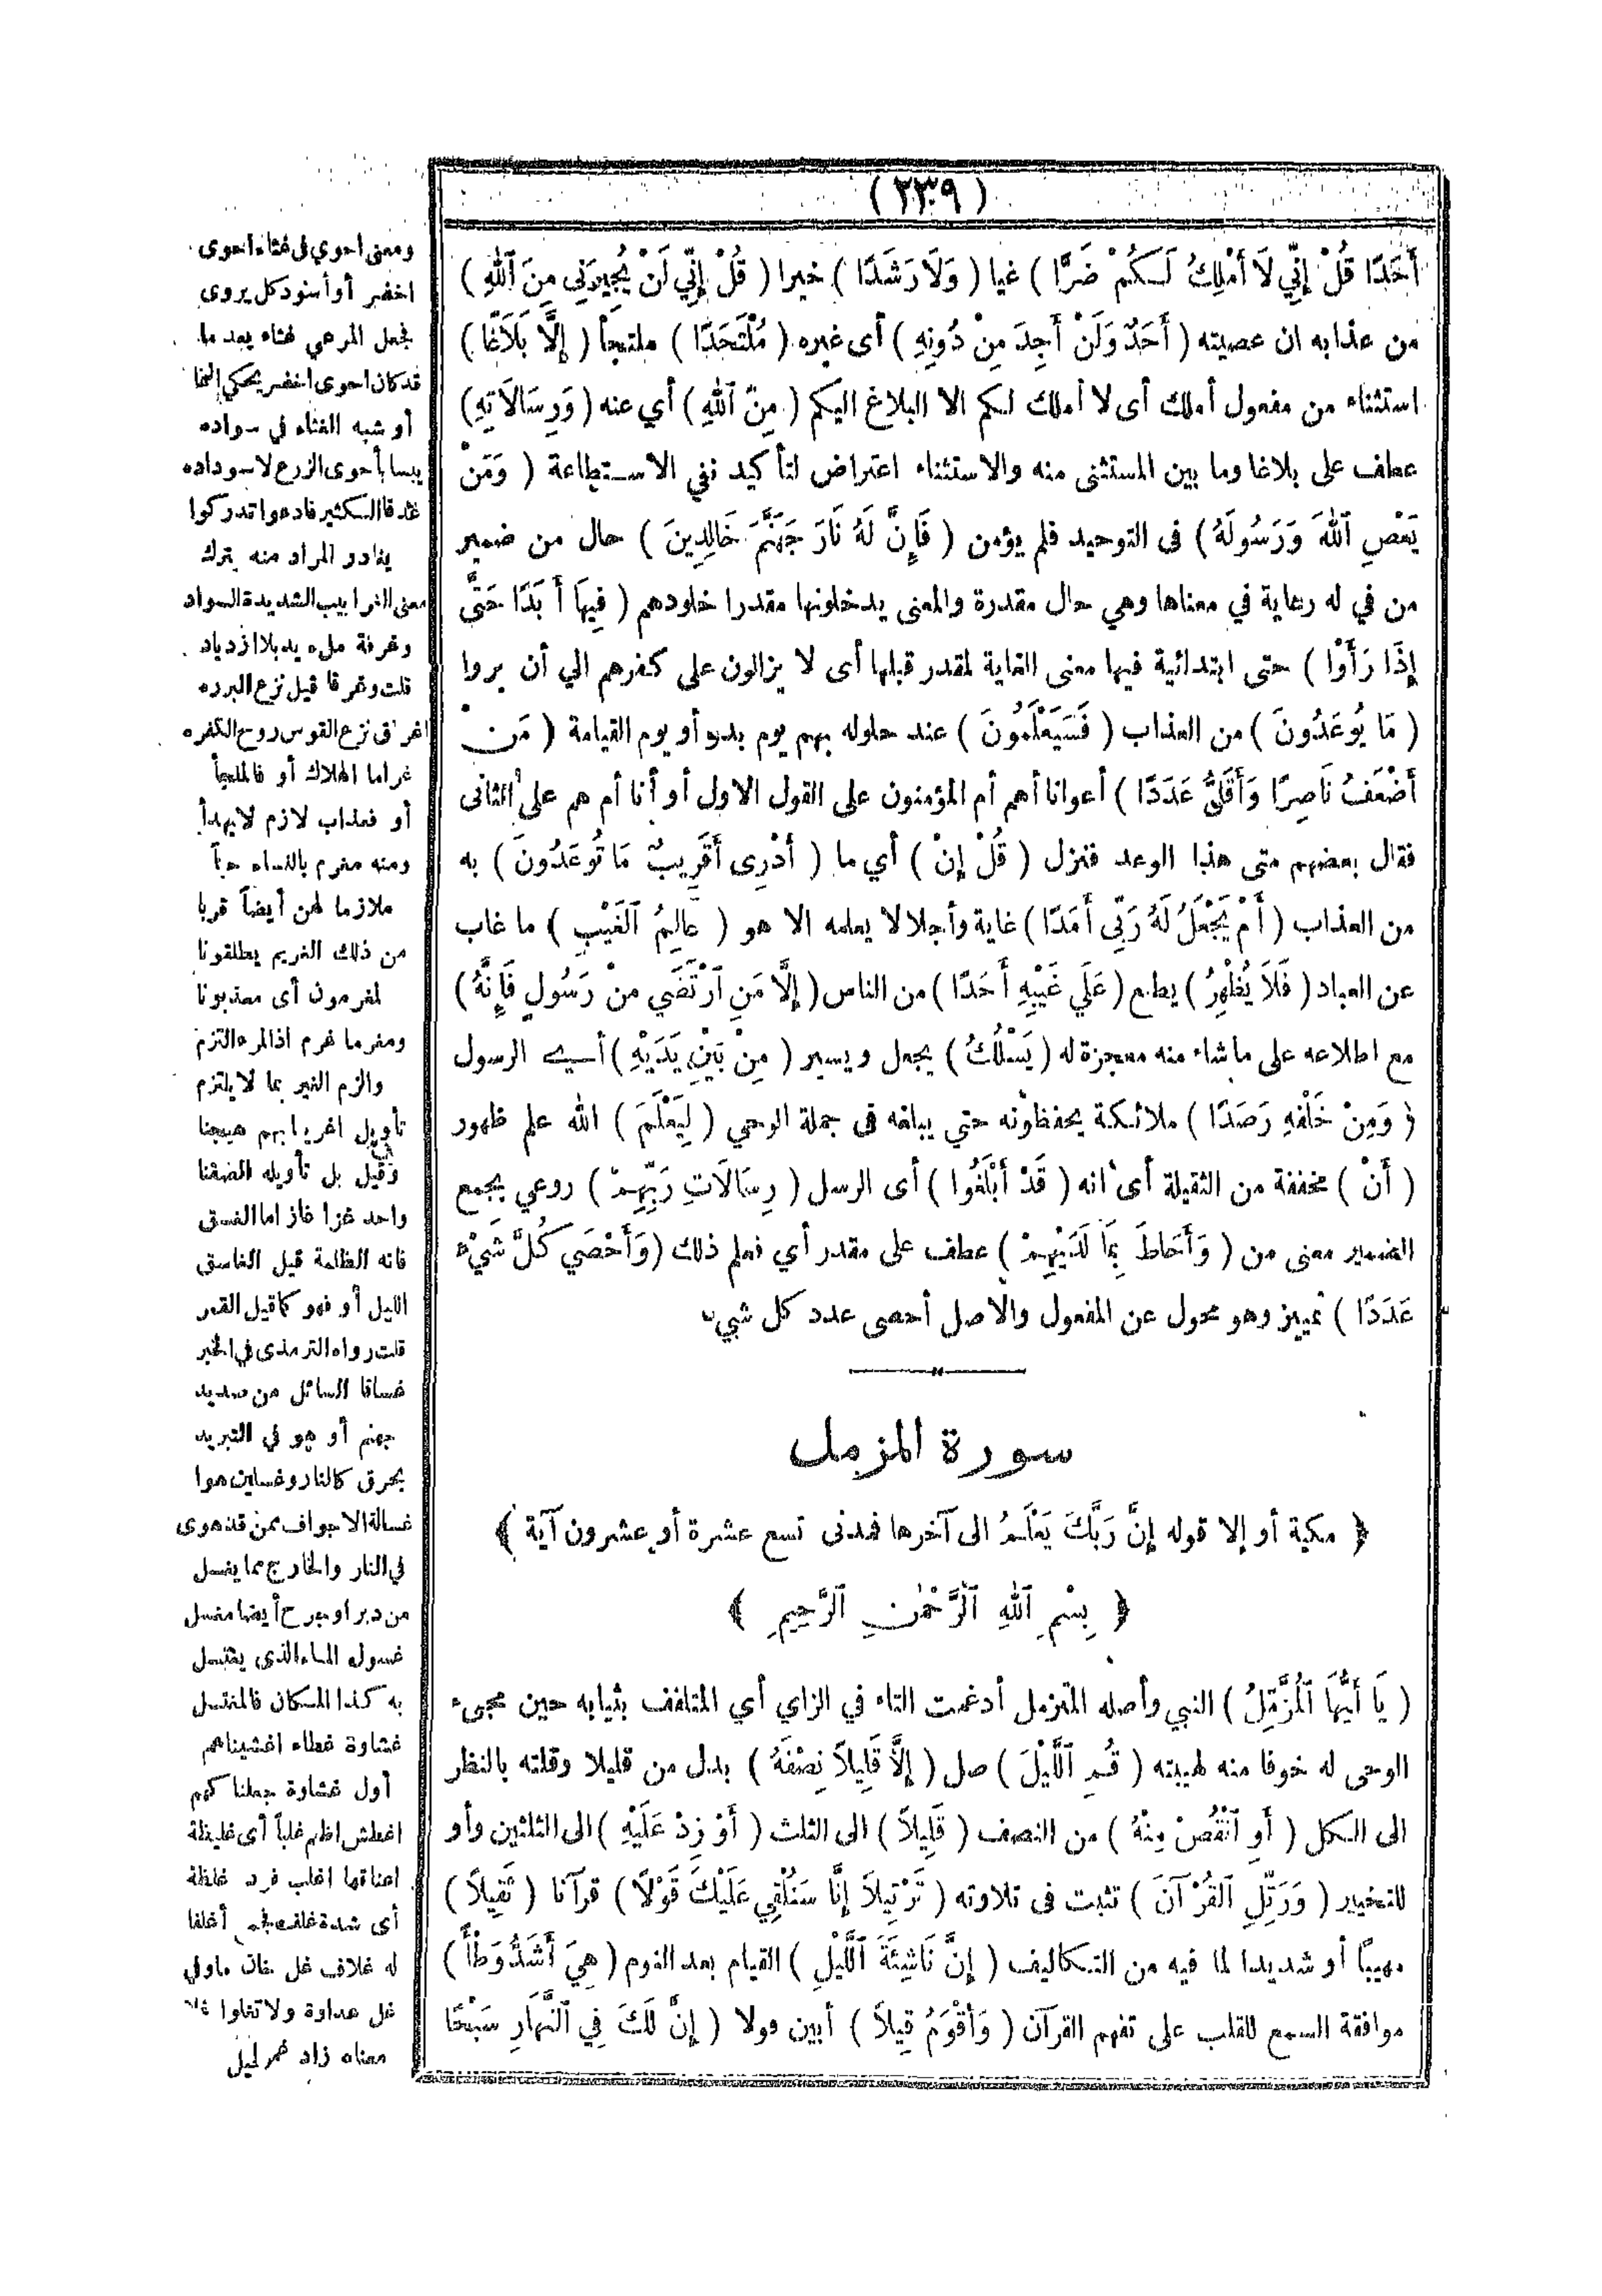 (٢٣٩)
أَحَدًا قُلْ إِنِّي لَا أَمْلِكُ لَكُمْ ضَرًّا ) غيا ( وَلَا رَشَدًا ) خيرا ( قُلْ إِنِّي لَنْ يُجِيرَنِي مِنَ ٱللهِ )
من عذابه ان عصيته ( أَحَدٌ وَلَنْ أَجِدَ مِنْ دُونِهِ ) أى غيره ( مُلْتَحَدًا ) ملتجأ ( إِلَّا بَلَاغًا )
استثناء من مفعول أملك أى لا أملك لكم الا البلاغ اليكم ( مِنَ ٱللهِ ) أي عنه ( وَرِسَالَاتِهِ )
عطف على بلاغا وما بين المستثنى منه والاستثناء اعتراض لتأكيد نفي الاستطاعة ( وَمَنْ
يَعْصِ ٱللهَ وَرَسُولَهُ ) فى التوحيد فلم يؤمن ( فَإِنَّ لَهُ نَارَ جَهَنَّمَ خَالِدِينَ ) حال من ضمير
من في له رعاية في معناها وهي حال مقدرة والمعنى يدخلونها مقدرا خلودهم ( فِيهَا أَبَدًا حَتَّى
إِذَا رَأَوْا ) حتى ابتدائية فيها معنى الغاية لمقدر قبلها أى لا يزالون على كفرهم الي أن يروا
( مَا يُوعَدُونَ ) من العذاب ( فَسَيَعْلَمُونَ ) عند حلوله بهم يوم بدر أو يوم القيامة ( مَنْ
أَضْعَفُ نَاصِرًا وَأَقَلُّ عَدَدًا ) أعوانا أهم أم المؤمنون على القول الاول أو أنا أم هم على الثانى
فقال بعضهم متى هذا الوعد فنزل ( قُلْ إِنْ ) أي ما ( أَدْرِى أَقَرِيبٌ مَا تُوعَدُونَ ) به
من العذاب ( أَمْ يَجْعَلُ لَهُ رَبِّى أَمَدًا ) غاية وأجلا لا يعلمه الا هو ( عَالِمُ ٱلْغَيْبِ ) ما غاب
عن العباد ( فَلَا يُظْهِرُ ) يطلع ( عَلَي غَيْبِهِ أَحَدًا ) من الناس ( إِلَّا مَنِ ٱرْتَضَي مِنْ رَسُولٍ فَإِنَّهُ )
مع اطلاعه على ما شاء منه معجزة له ( يَسْلُكُ ) يجعل ويسير ( مِنْ بَيْنِ يَدَيْهِ ) أي الرسول
( وَمِنْ خَلْفِهِ رَصَدًا ) ملائكة يحفظونه حتي يبلغه فى جملة الوحي ( لِيَعْلَمَ ) الله علم ظهور
( أَنْ ) مخففة من الثقيلة أى أنه ( قَدْ أَبْلَغُوا ) أى الرسل ( رِسَالَاتِ رَبِّهِمْ ) روعي بجمع
الضمير معنى من ( وَأَحَاطَ بِمَا لَدَيْهِمْ ) عطف على مقدر أي فعلم ذلك ( وَأَحْصَي كُلَّ شَيْءٍ
عَدَدًا ) تمييز وهو محول عن المفعول والاصل أحصى عدد كل شيء
سورة المزمل
﴿ مكية أو إلا قوله إِنَّ رَبَّكَ يَعْلَمُ الى آخرها فمدنى تسع عشرة أو عشرون آية ﴾
﴿ بِسْمِ ٱللهِ ٱلرَّحْمٰنِ ٱلرَّحِيمِ ﴾
( يَا أَيُّهَا ٱلْمُزَّمِّلُ ) النبي وأصله المتزمل أدغمت التاء في الزاي أي المتلفف بثيابه حين مجيء
الوحى له خوفا منه لهيبته ( قُمِ ٱللَّيْلَ ) صل ( إِلَّا قَلِيلاً نِصْفَهُ ) بدل من قليلا وقلته بالنظر
الى الكل ( أَوِ ٱنْقُصْ مِنْهُ ) من النصف ( قَلِيلاً ) الى الثلث ( أَوْ زِدْ عَلَيْهِ ) الى الثلثين وأو
للتخيير ( وَرَتِّلِ ٱلْقُرْآنَ ) تثبت فى تلاوته ( تَرْتِيلاً إِنَّا سَنُلْقِي عَلَيْكَ قَوْلاً ) قرآنا ( ثَقِيلاً )
مهيبًا أو شديدا لما فيه من التكاليف ( إِنَّ نَاشِئَةَ ٱللَّيْلِ ) القيام بعد النوم ( هِيَ أَشَدُّ وَطْأً )
موافقة السمع للقلب على تفهم القرآن ( وَأَقْوَمُ قِيلاً ) أبين قولا ( إِنَّ لَكَ فِي ٱلنَّهَارِ سَبْحًا
ومعنى احوي في غثاء احوى
اخضر أو أسود كل يروى
فجعل المرعي غثاء بعد ما
قد كان احوى اخضر يحكي
أو شبه الغثاء في سواده
يبسا بأحوى الزرع لاسوداده
غدقا الكثير فادهوا تدركوا
يغادر المراد منه يترك
معنى الغرابيب الشديدة السواد
وغرفة ملء يد بلا ازدياد
قلت وغرقا قيل نزع البرره
اغراق نزع القوس روح الكفره
غراما الهلاك أو فالملجأ
أو فعذاب لازم لا يهدأ
ومنه مغرم بالنساء حبا
ملازما لهن أيضاً قربا
من ذلك الغريم يطلقونا
لمغرمون أى معذبونا
ومغرما غرم اذ المرء التزم
والزم الغير بما لا يلتزم
تأويل اغرينا بهم هيجنا
وقيل بل تأويله الصقنا
واحد غزا غاز اما الغسق
فانه الظلمة قيل الغاسق
الليل أو فهو كما قيل القمر
قلت رواه الترمذى في الخبر
غساقا السائل من صديد
جهنم أو هو في التبريد
يحرق كالنار وغسلين هوا
غسالة الاجواف ممن قد هوى
في النار والخارج مما يغسل
من دبر او جرح أيضا مغسل
غسوله الماء الذى يغتسل
به كذا المكان فالمغتسل
غشاوة غطاء اغشيناهم
أول غشاوة جعلنا لهم
اغطش اظلم غلبا أى غليظة
اعناقها اغلب فرد غلظة
أى شدة غلف أغلفا
له غلاف غل خان ماوفي
غل عداوة ولا تغلوا
معناه زاد